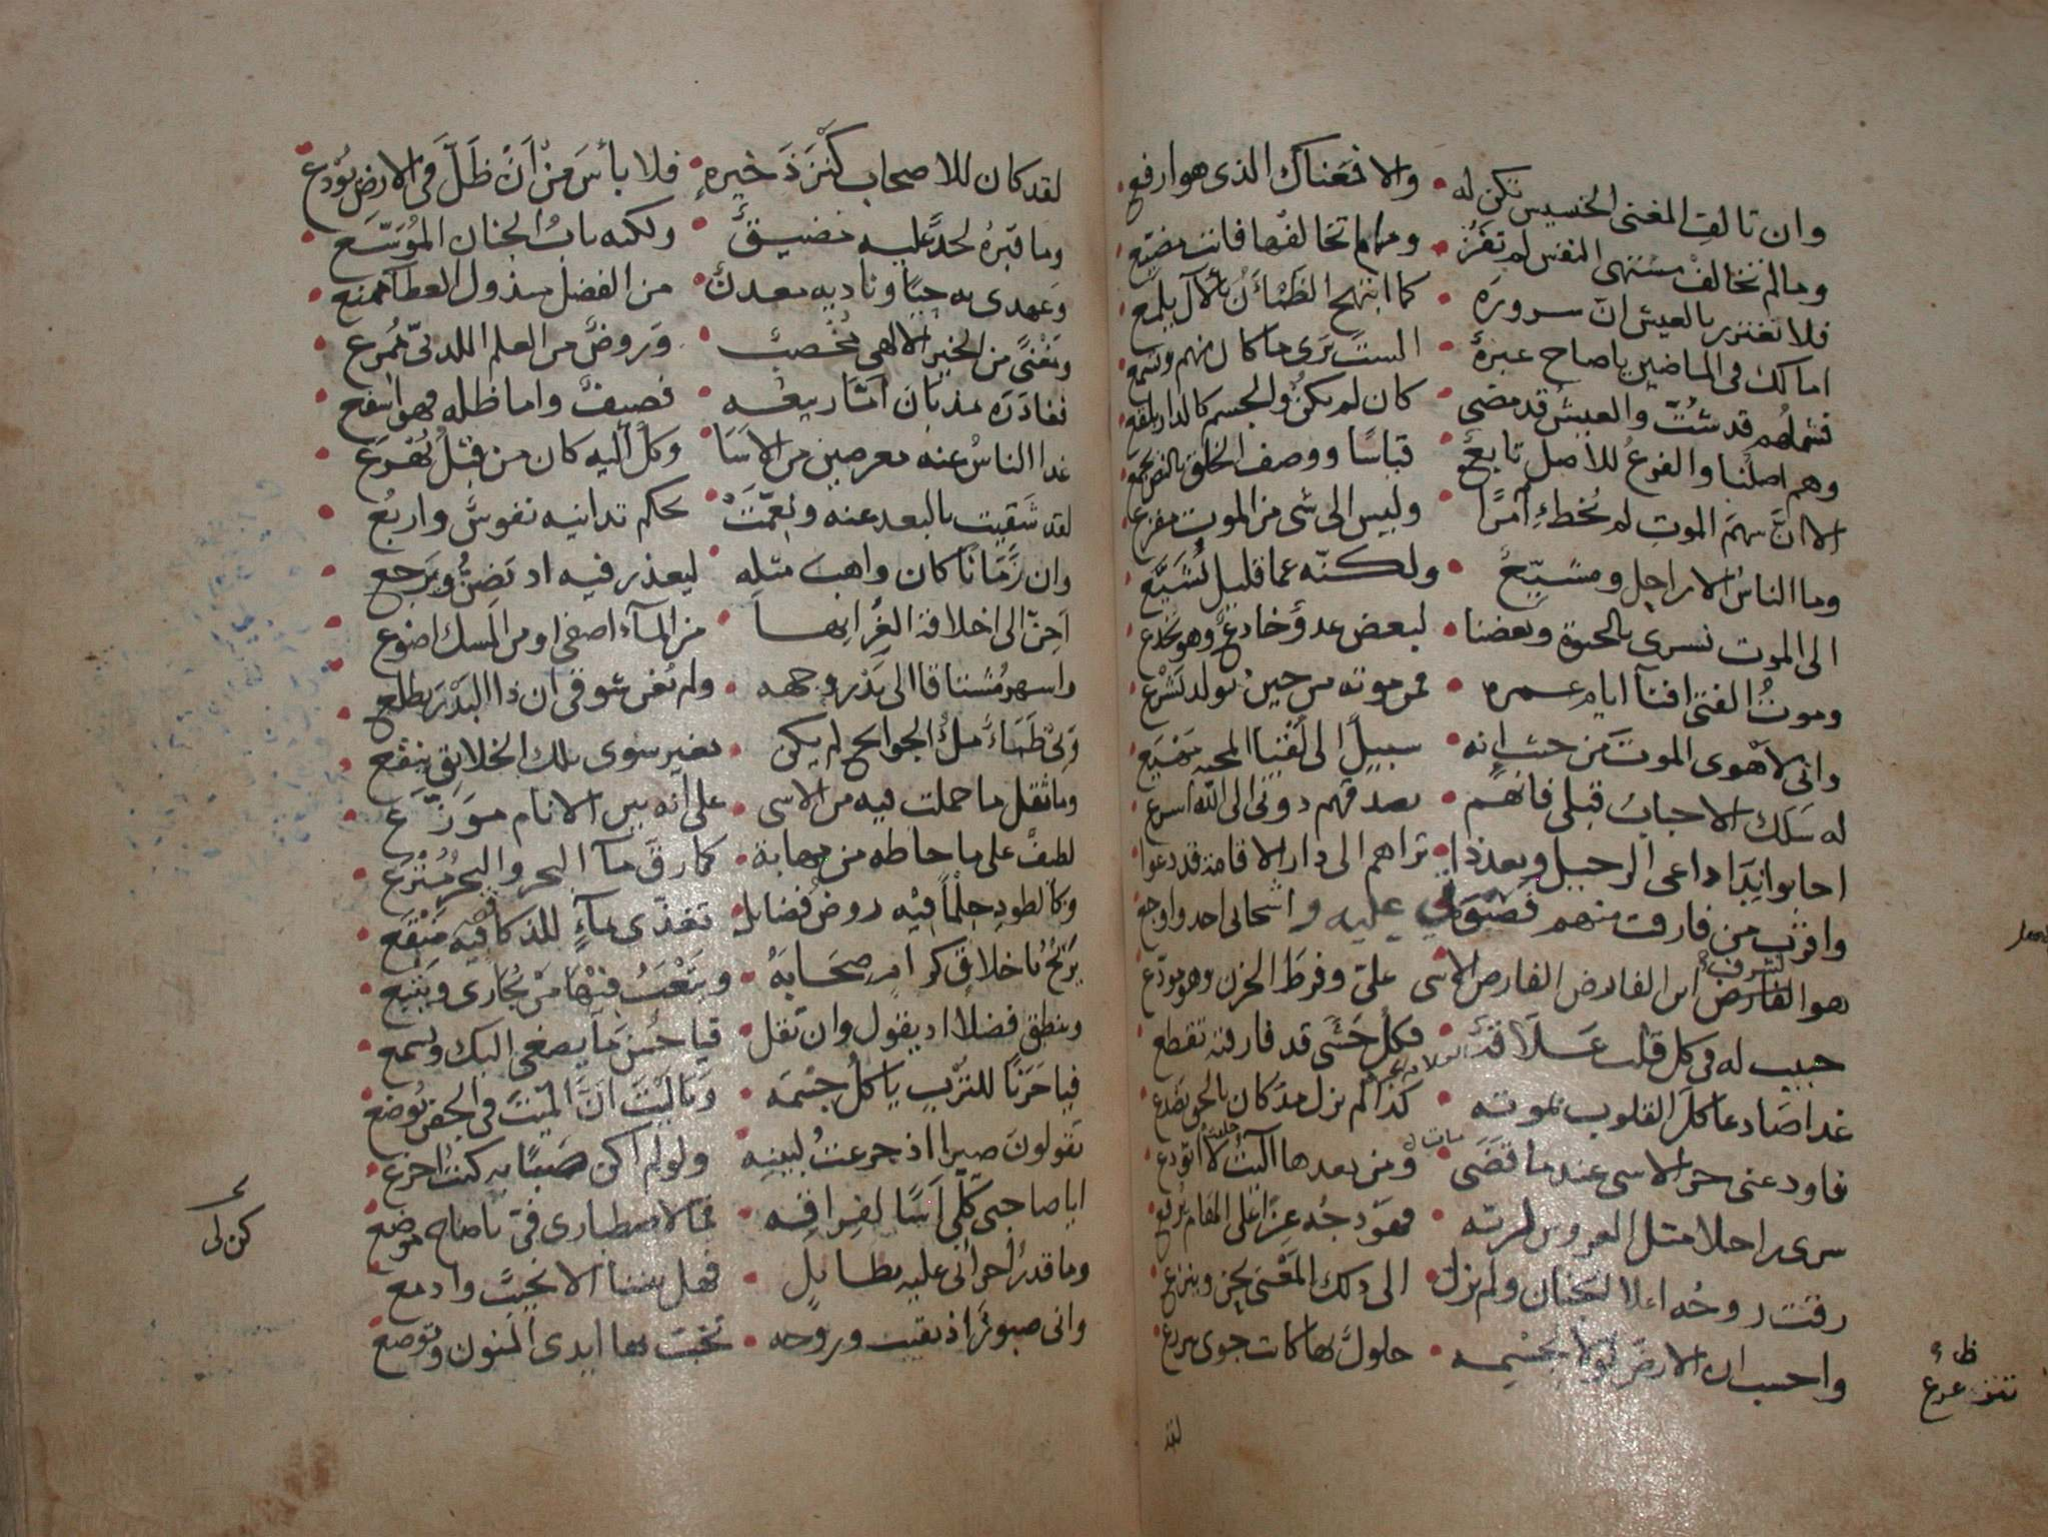 وان تالف المغنى الخسيس تكن له • والا فمغناك الذى هو ارفع
وما لم تخالف مشتهى النفس لم تفز • ومهما تخالفها فانت مضيع
فلا تغترر بالعيش ان سروره • كما ابتهج الظمآن بالآل يلمع
امالك فى الماضين ياصاح عبرة • الست ترى ما كان منهم وتسمع
فشملهم قد شتت والعيش قد مضى • كان لم يكن والجسم كالدار بلقع
وهم اصلنا والفرع للاصل تابع • قياسا ووصف الخلق بالنص يجمع
الا ان سهم الموت لم يخطء آمرا • وليس الى شى من الموت مفزع
وما الناس الا راحل ومشيع • ولكنه عما قليل يشيع
الى الموت نسرى بالحيوة وبعضنا • لبعض عدو خادع وهو يخدع
وموت الفتى افنآ ايام عمره • فمن موته من حين يولد يشرع
وانى لاهوى الموت من حيث انه • سبيل الى لقيا المحبه مهيع
له سلك الاحباب قبلى فانهم • بصدقهم دونى الى الله اسرع
اجابوا ندا داعى الرحيل وبعد ذا • تراهم الى دار الاقامة قد دعوا
واقرب من فارقت منهم فصبوتى عليه واشجانى احد واوجع
هو الشرف ابن الفارض الفارض الاسى علىّ وفرط الحزن وهو مودع
حبيب له فى كل قلب علاقة • فكل حشى قد فارقته تقطع
غدا صادعا كل القلوب بموته • كذا لم يزل مذ كان بالحق يصدع
فاودعنى حر الاسى عند ما قضى • ومن بعدها آليت لا اتودع
سرى راحلا مثل العروس لربه • فهودجه عزا على الهام يرفع
رقت روحه اعلا الجنان ولم يزل • الى ذلك المغنى يحن وينزع
واحسب ان الارض لولا بجسمه • حلول لها كانت جوى
لقد
لقد كان للاصحاب كنز ذخيرة • فلا بأس من ان ظل فى الارض يودع
وما قبره لحد عليه مضيق • ولكنه باب الجنان الموسع
وعهدى به حيا وناديه معدن • من الفضل مبذول العطا ممنع
ومغنى من الخير الالهى مخصب • وروض من العلم اللدنى ممرع
فغادره مذ بان اما ربيعه • فصيف واما ظله فهو اسفع
غدا الناس عنه معرضين من الاسا • وكل اليه كان من قبل يهرع
لقد شقيت بالبعد عنه ونعمت • بحكم تدانيه نفوس واربع
وان زمانا كان واهب مثله • ليعذر فيه اذ يضن ويرجع
احن الى اخلاقه الغر انها • من المآء اصفى او من المسك اضوع
واسهر مشتاقا الى بدر وجهه • ولم يغن شوقى ان ذا البدر يطلع
ولى ظماء ملء الجوانح لم يكن • بغير سوى تلك الخلايق ينقع
وما ثقل ما حملت فيه من الاسى • على انه بين الانام موزع
لطيف على ما حاطه من مهابة • كما رق مآ البحر والبحر مترع
وكالطود حلما فيه روض فضايل • تغذى بمآء للذكا فيه منقع
يرنح باخلاق كرام صحابه • ويتعب فيها من يجارى ويتبع
وينطق فضلا اذ يقول وان تقل • فيا حسن ما يصغى اليك ويسمع
فيا حزنا للترب ياكل جسمه • ويا ليت ان الميت فى الجفن يوضع
يقولون صبرا اذ جزعت لبينه ولو لم اكن صبا به كنت اجزع
ايا صاحبى كلى اسا لفراقه • فما لاصطبارى فىّ ياصاح موضع
وما قدر احزانى عليه بطايل • فهل بيننا الا نحيب وادمع
وانى صبور اذ بقيت وروحه • تخب بها ايدى المنون وتوضع